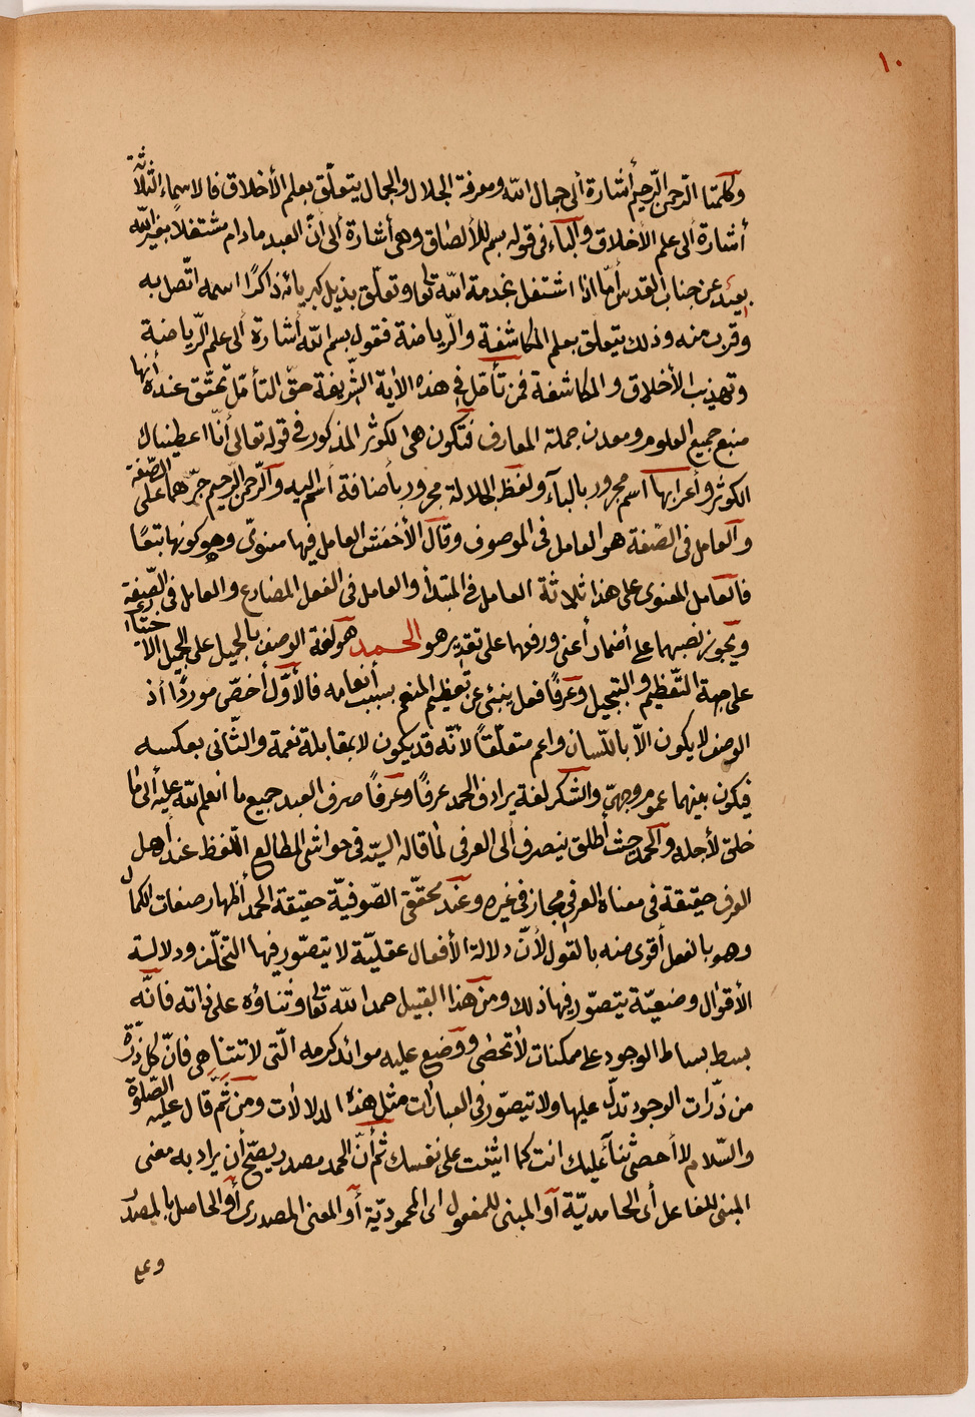 ١٠
وكلمتا الرّحمن الرّحيم أشارة ألى جمال اللّه ومعرفة الجلال والجمال يتعلّق بعلم الأخلاق فالاسماء الثّلاثة
أشارة ألى علم الأخلاق والباء فى قوله بسم للألصاق وهى أشارة ألى انّ العبد مادام مشتغلاً بغير اللّه
بعيد عن جناب القدس أمّا اذا اشتغل بخدمة اللّه تعالى وتعلّق بذيل كبريائه ذاكرًا اسمه اتّصل به
وقرب منه وذلك يتعلّق بعلم المكاشفة والرّياضة فقول بسم اللّه أشارة ألى علم الرّياضة
وتهذيب الأخلاق والمكاشفة فمن تأمّل فى هذه الأية الشّريفة حقّ التأمّل تحقّق عنده أنها
منبع جميع العلوم ومعدن جملة المعارف فتكون هى الكوثر المذكور فى قوله تعالى أنّا اعطيناك
الكوثر وأعرابها اسم مجرور بالبآء ولفظ الجلالة مجرور بأضافة أسم اليه والرّحمن الرّحيم جرّهما على الصّفة
والعامل فى الصّفة هو العامل فى الموصوف وقال الأخفش العامل فيها معنوىّ وهو كونها تبعًا
فالعامل المعنوى على هذا ثلاثة العامل فى المبتدأ والعامل فى الفعل المضارع والعامل فى الصّفة
ويجوز نصبهما على أضمار أعنى ورفعهما على تقدير هو الحمد هو لغة الوصف بالجميل على الجميل الاختيارى
على جهة التّعظيم والتبجيل وعرفًا فعل ينبئ عن تعظيم المنعم بسبب أنعامه فالأوّل أخصّ موردًا أذ
الوصف لا يكون الاّ باللّسان واعم متعلّقاً لأنّه قد يكون لا بمقابلة نعمة والثّانى بعكسه
فيكون بينهما عموم وجهىّ والشّكر لغة يرادف الحمد عرفًا وعرفاً صرف العبد جميع ما انعم اللّه عليه ألى ما
خلق لأجله والحمد حيث أطلق ينصرف ألى العرفى لما قاله السيّد فى حواشى المطالع اللّفظ عند أهل
العرف حقيقة فى معناه العرفى مجاز فى غيره وعند محقّقى الصّوفيّة حقيقة الحمد أظهار صفات الكمال
وهو بالفعل أقوى منه بالقول لأنّ دلالة الأفعال عقليّة لا يتصوّر فيها التخلّف ودلالة
الأقوال وضعيّة يتصوّر فيها ذلك ومن هذا القبيل حمد اللّه تعالى وثناؤه على ذاته فانّه
بسط بساط الوجود على ممكنات لاتحصى ووضع عليه موائد كرمه الّتى لاتتناهى فانّ كل ذرّة
من ذرّات الوجود تدلّ عليها ولا يتصوّر فى العبارات مثل هذه الدلالات ومن ثمّ قال عليه الصّلوة
والسّلام لا أحصى ثنآء عليك انت كما اثنيت على نفسك ثم أنّ الحمد مصدر يصحّ أن يراد به معنى
المبنى للفاعل أى الحامديّة أو المبنى للمفعول اى المحموديّة أو المعنى المصدرى أو الحاصل بالمصدر
وعلى